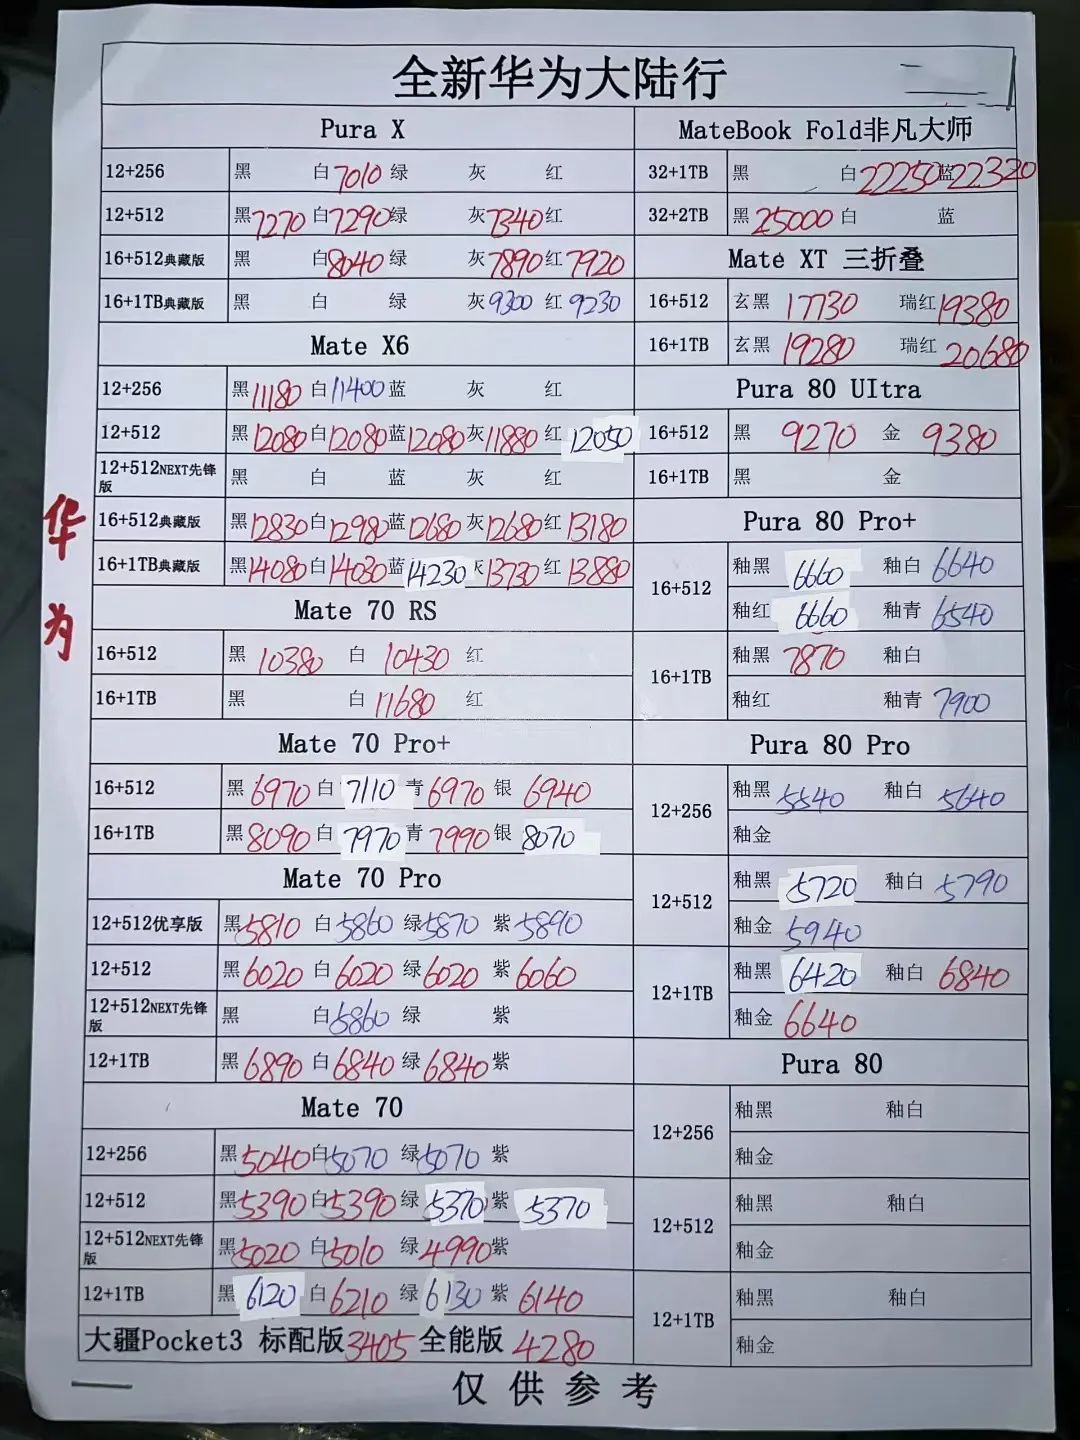 全新华为大陆行
Pura X
12+256 黑 白7010 绿 灰 红
12+512 黑7270 白7290 绿 灰7340 红
16+512典藏版 黑 白8040 绿 灰7890 红7920
16+1TB典藏版 黑 白 绿 灰9300 红9230
Mate X6
12+256 黑11180 白11400 蓝 灰 红
12+512 黑12080 白12080 蓝12080 灰11880 红12050
12+512NEXT先锋版 黑 白 蓝 灰 红
16+512典藏版 黑12830 白12980 蓝12680 灰12680 红13180
16+1TB典藏版 黑14080 白14030 蓝14230 灰13730 红13880
Mate 70 RS
16+512 黑 10380 白 10430 红
16+1TB 黑 白 11680 红
Mate 70 Pro+
16+512 黑6970 白7110 青6970 银6940
16+1TB 黑8090 白7970 青7990 银8070
Mate 70 Pro
12+512优享版 黑5810 白5860 绿5870 紫5890
12+512 黑6020 白6020 绿6020 紫6060
12+512NEXT先锋版 黑 白5860 绿 紫
12+1TB 黑6890 白6840 绿6840 紫
Mate 70
12+256 黑5040 白5070 绿5070 紫
12+512 黑5390 白5390 绿5370 紫5370
12+512NEXT先锋版 黑5020 白5010 绿4990 紫
12+1TB 黑6120 白6210 绿6130 紫6140
大疆Pocket3 标配版3405 全能版4280
MateBook Fold非凡大师
32+1TB 黑 白22250 蓝22320
32+2TB 黑25000 白 蓝
Mate XT 三折叠
16+512 玄黑 17730 瑞红19380
16+1TB 玄黑 19280 瑞红20680
Pura 80 UItra
16+512 黑 9270 金 9380
16+1TB 黑 金
Pura 80 Pro+
16+512 釉黑 6660 釉白 6640
釉红 6660 釉青 6540
16+1TB 釉黑 7870 釉白
釉红 釉青 7900
Pura 80 Pro
12+256 釉黑 5540 釉白 5640
釉金
12+512 釉黑 5720 釉白 5790
釉金 5940
12+1TB 釉黑 6420 釉白 6840
釉金 6640
Pura 80
12+256 釉黑 釉白
釉金
12+512 釉黑 釉白
釉金
12+1TB 釉黑 釉白
釉金
华为
仅供参考